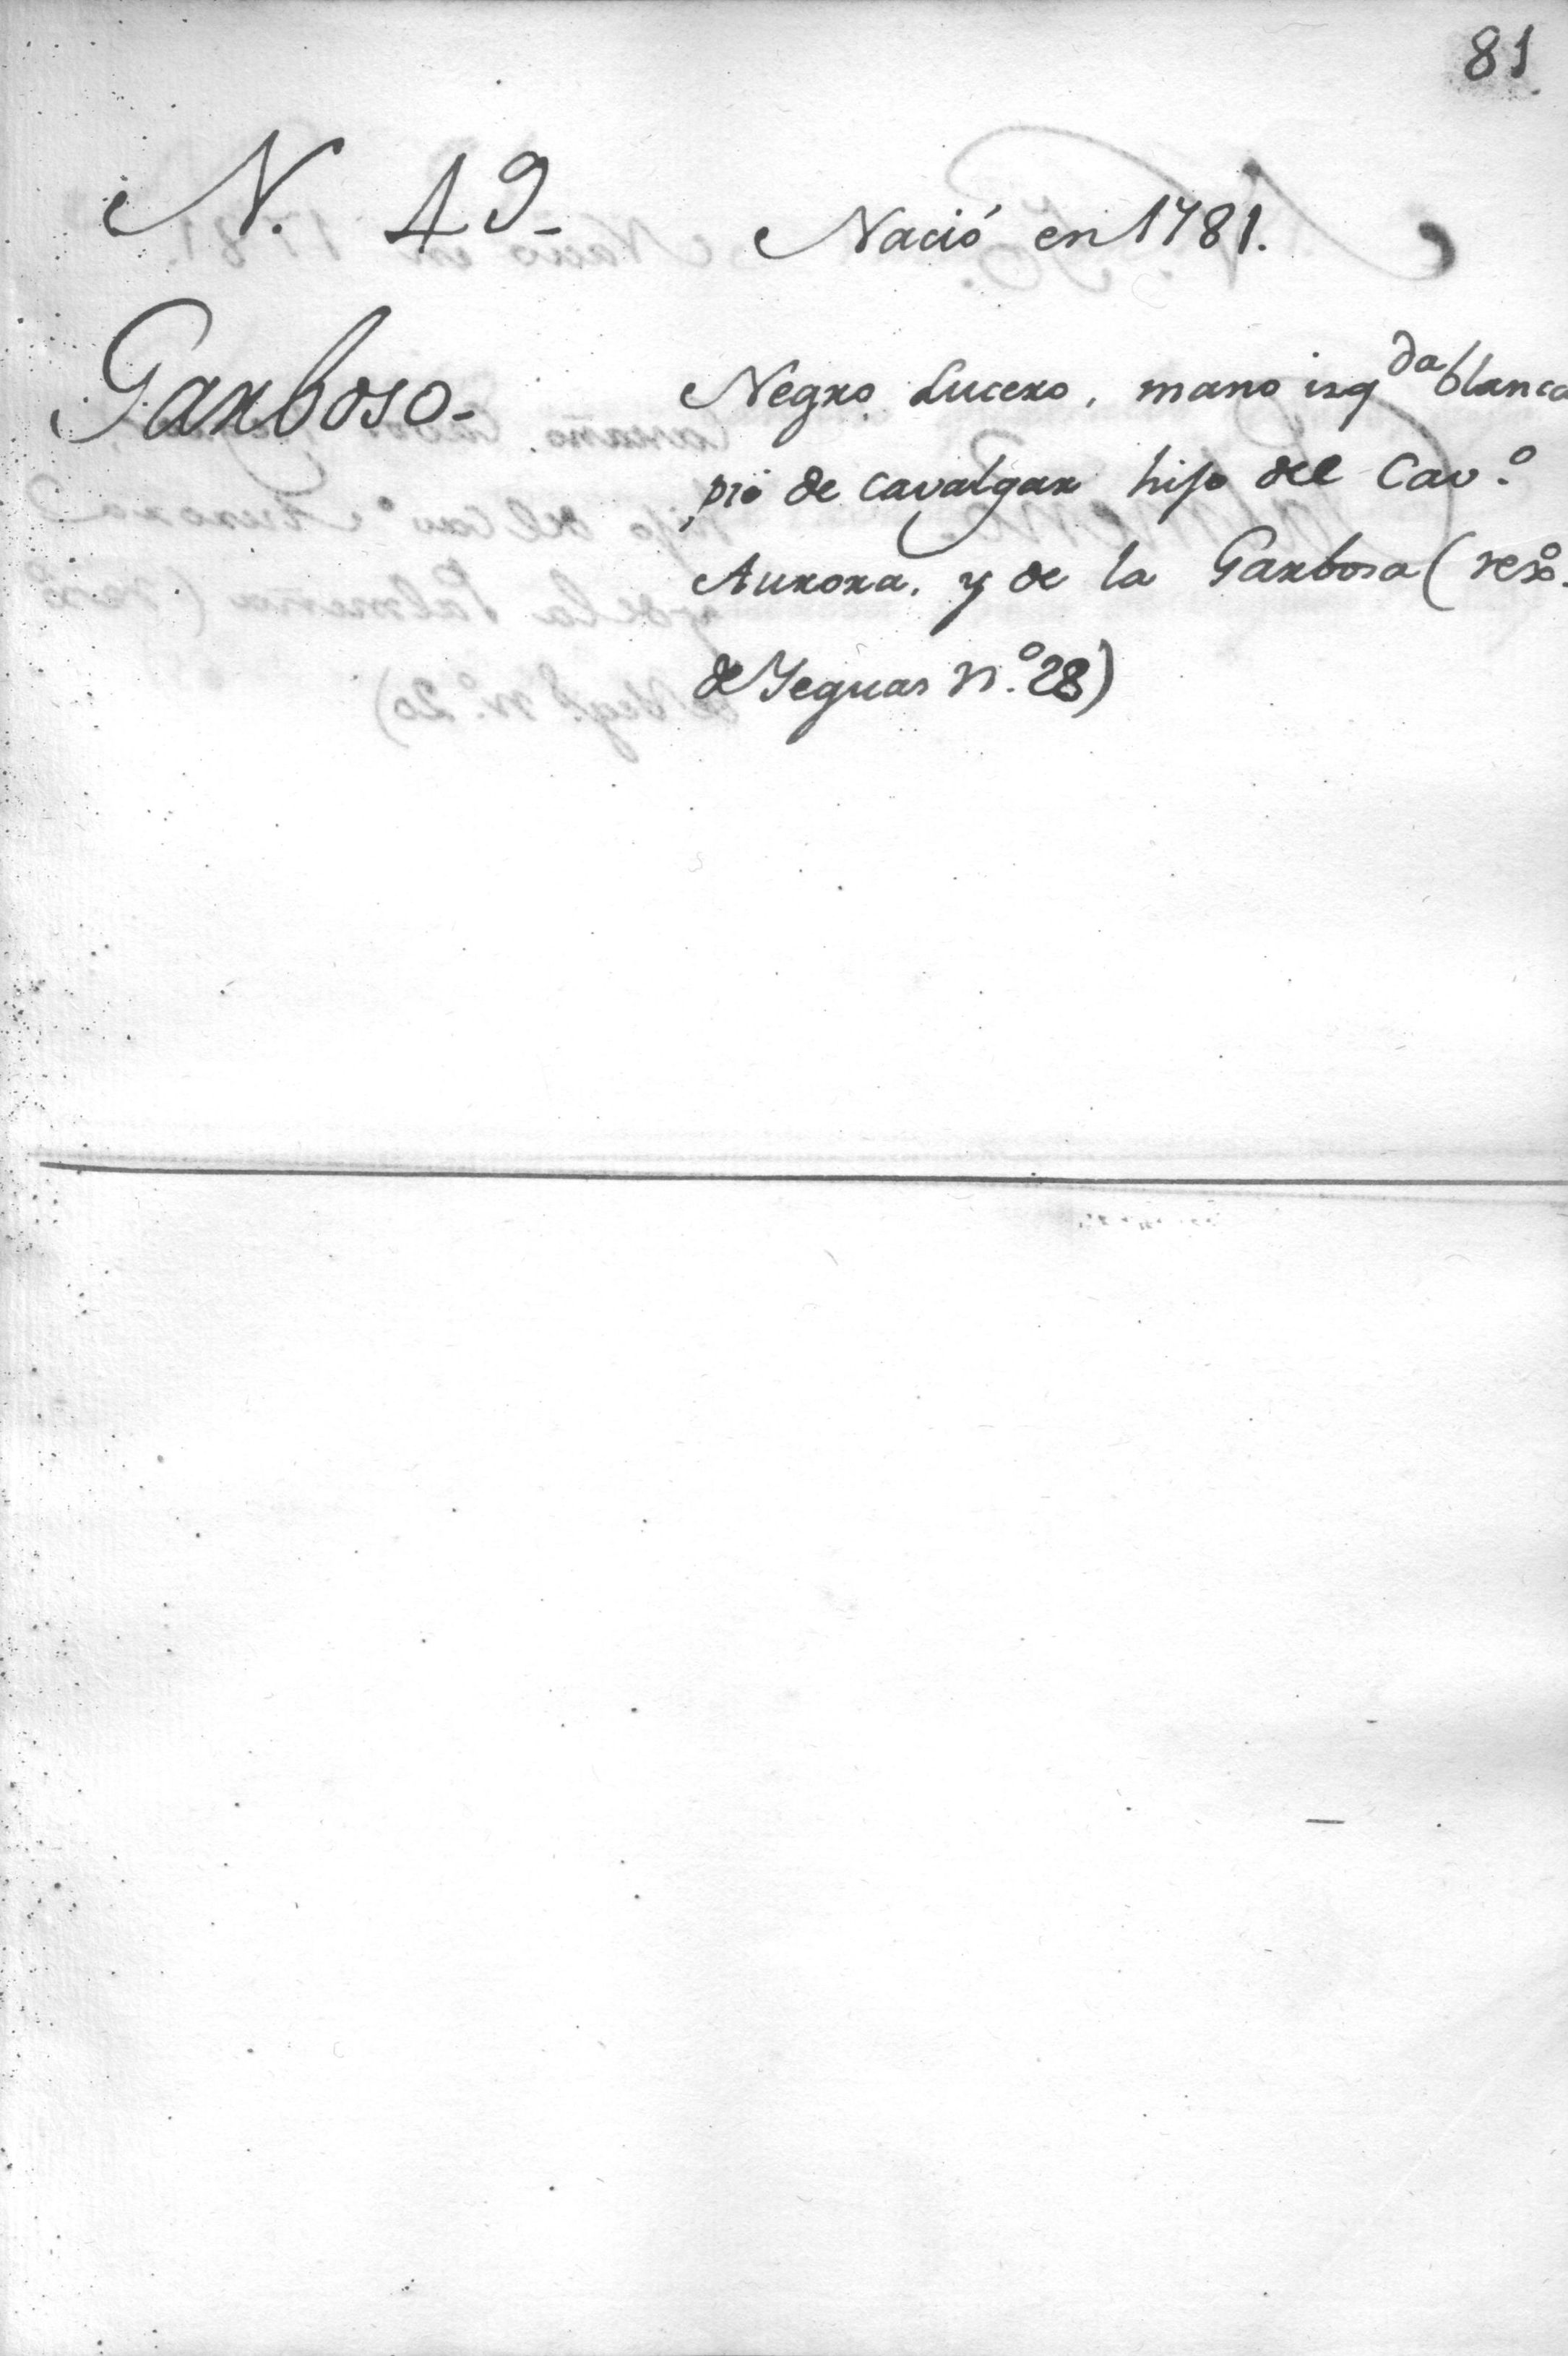 81
N. 49-
Nació en 1781.
Garboso-
Negro Lucero, mano izq.da blanca
pie de cavalgar hijo del Cav.º
Aurora, y de la Garbosa (
de Yeguas n.º 28)